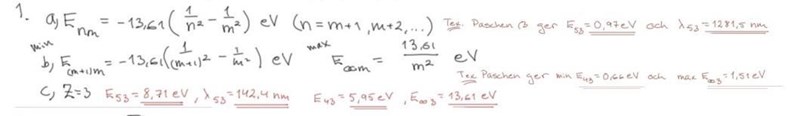 1. a, E_nm = -13,61 (1/n² - 1/m²) eV (n=m+1, m+2, ...) Tex. Paschen β ger E₅₃=0,97eV och λ₅₃=1281,5 nm
b, E^min_(m+1)m = -13,61 (1/(m+1)² - 1/m²) eV E^max_∞m = 13,61/m² eV
Tex Paschen ger min E₄₃=0,66eV och max E_∞3=1,51eV
c, Z=3 E₅₃=8,71 eV, λ₅₃=142,4 nm E₄₃=5,95eV, E_∞3=13,61 eV